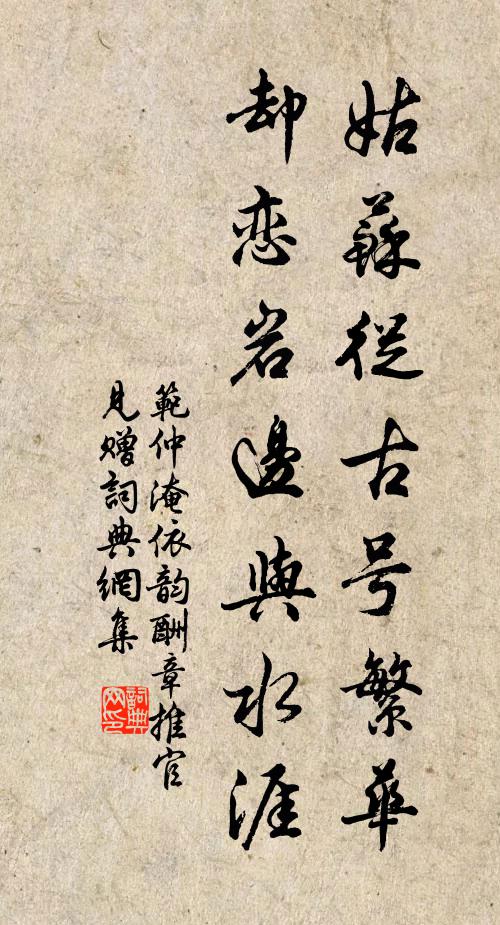 姑蘇從古号繁華
却恋岩邊與水涯
範仲淹依韵酬章推官
見贈詞典網集
詞典网印